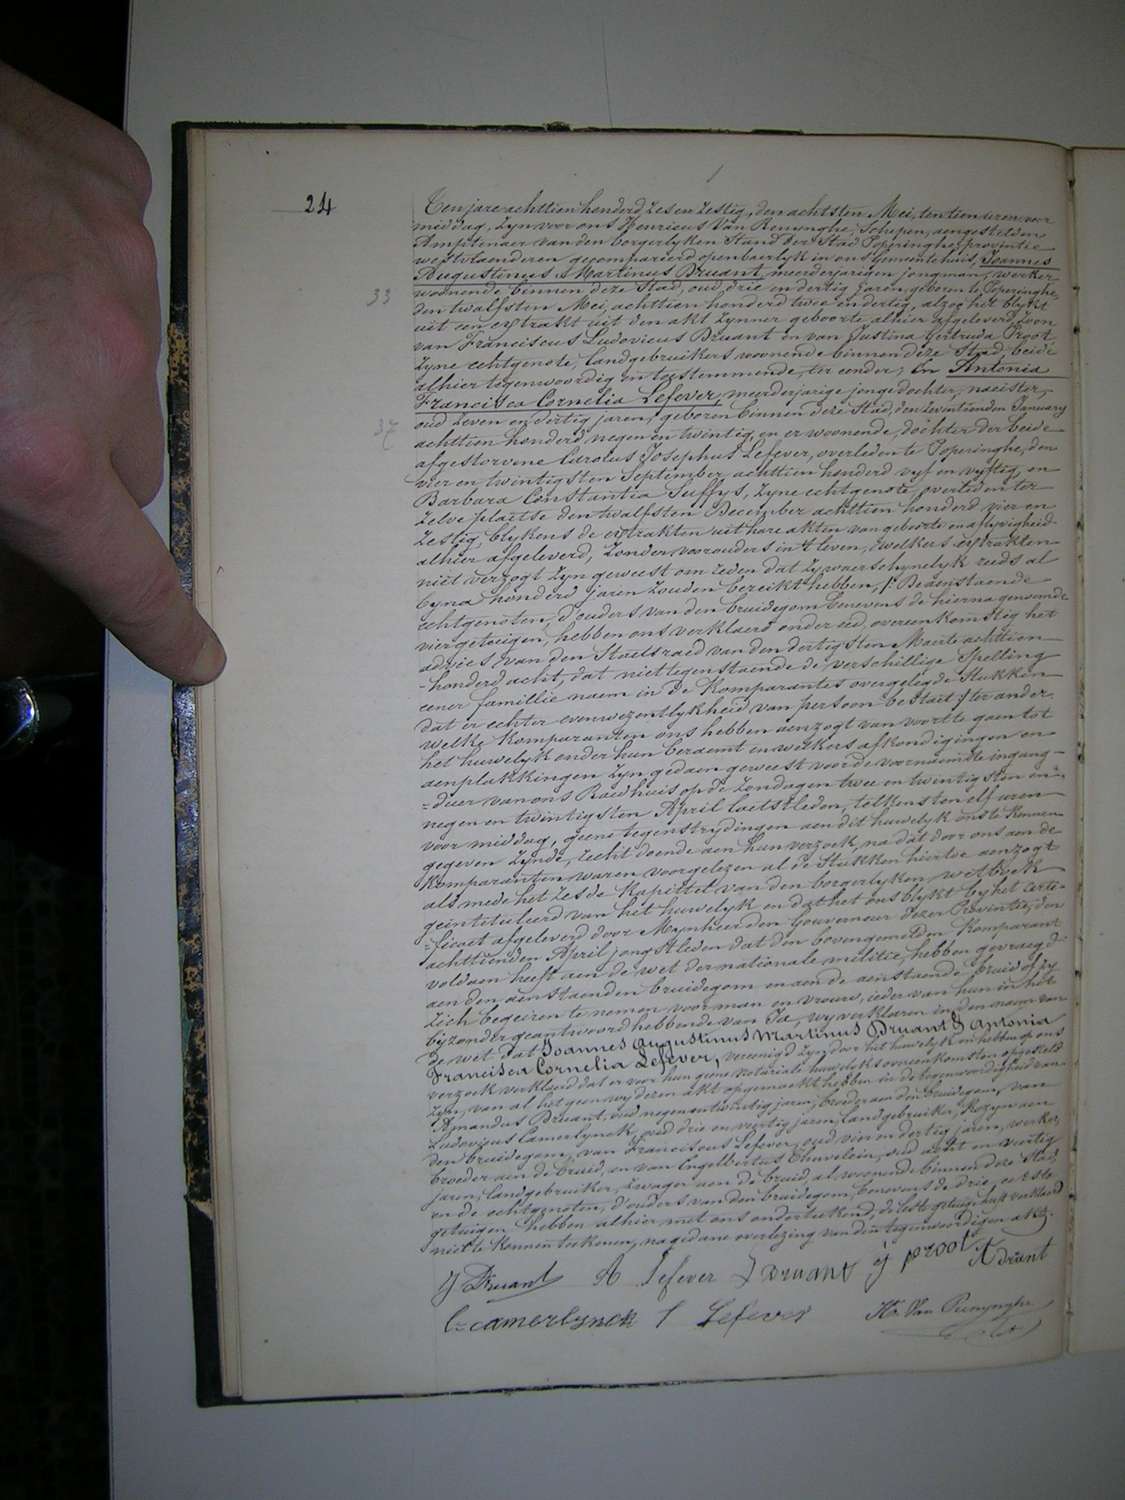 24
Ten jare achttien honderd zes en zestig, den achtsten Mei, ten tien uren voor
middag, zyn voor ons Henricus Van Renynghe, Schepen, aengestelden
Amptenaer van den borgerlyken Stand der Stad Poperinghe, provintie
westvlaenderen gecompareerd openbaerlyk in ons Gemeentehuis, Joannes
Augustinus Martinus Druant meerderjarigen jongman, werker
woonende binnen deze Stad, oud drie en dertig jaren, geboren te Poperinghe,
33
den twalfsten Mei, achttien honderd twee en dertig, alzoo het blykt
uit een extrakt uit den akt zynner geboorte alhier afgeleverd, zoon
van Franciscus Ludovicus Druant en van Justina Gertruda Proot
zyne echtgenote, landgebruikers woonende binnen deze Stad, beide
alhier tegenwoordig en toestemmende, ter eender; En Antonia
Francisca Cornelia Lefever, meerderjarige jonge dochter, naeister,
oud zeven en dertig jaren, geboren binnen deze Stad, den zeventienden January
37
achttien honderd negen en twintig, en er woonende, dochter der beide
afgestorvene Carolus Josephus Lefever, overleden te Poperinghe, den
vier en twintigsten September achttien honderd vyf en vyftig, en
Barbara Constantia Suffys, zyne echtgenote, overleden ter
zelve plaetse den twalfsten December achttien honderd vier en
zestig, blykens de extrakten uit hare akten van geboorte en aflyvigheid
alhier afgeleverd, zonder voorouders in 't leven, welkers extrakten
niet verzogt zyn geweest om reden dat zy waerschynelyk reeds al
byna honderd jaren zouden bereikt hebben, Deaenstaende
echtgenoten, d'ouders van den bruidegom benevens de hierna genoemde
vier getuigen, hebben ons verklaerd onder eed, overeenkomstig het
advies van den Staetsraed van den dertigsten Maerte achttien
honderd acht, dat niettegenstaende de verschillige Spelling
eener famillie naem in de Komparantes overgelegde Stukken
dat er echter evenwezentlykheid van persoon bestaet; ter ander
welke Komparanten ons hebben aenzogt van voorts te gaen tot
het huwelyk onder hun beraemt en welkers afkondigingen en
aenplakkingen zyn gedaen geweest voor de voornaemste ingang-
=deur van ons Raedhuis op de zondagen twee en twintigsten en
negen en twintigsten April laetstleden, telkens ten elf uren
voor middag, geene tegenstrydingen aen dit huwelyk ons te kennen
gegeven zynde, recht doende aen hun verzoek, na dat door ons aen de
Komparanten waren voorgelezen al de Stukken hiertoe aenzogt
als mede het zesde Kapittel van den borgerlyken wetboek
geintituleerd van het huwelyk en dat het ons blykt by het certi-
=ficaet afgeleverd door Mynheer den Gouverneur dezer Provintie, den
achttienden April jongstleden dat den bovengemelden Komparant
voldaen heeft aen de wet der nationale militie, hebben gevraegd
aen den aenstaenden bruidegom en aen de aenstaende bruid of zy
zich begeiren te nemen voor man en vrouw, ieder van hun in het
byzonder geantwoord hebbende van Ja, wy verklaren in den naem van
de wet dat Joannes Augustinus Martinus Druant & Antonia
Francisca Cornelia Lefever, vereenigd zyn door het huwelyk en hebben op ons
verzoek verklaerd dat er voor hun geene notariale huwelyks overeenkomsten opgesteld
zyn, van al het geen wy dezen akt opgemaekt hebben in de tegenwoordigheid van
Amandus Druant, oud negen en twintig jaren, broeder aen den bruidegom, van
Ludovicus Camerlynck, oud drie en veertig jaren, landgebruiker, Kozyn aen
den bruidegom, van Franciscus Lefever, oud vier en dertig jaren, werker,
broeder aen de bruid, en van Engelbertus oud acht en veertig
jaren, landgebruiker, zwager aen de bruid, al woonende binnen deze Stad,
en de echtgenoten, d'ouders van den bruidegom, benevens de drie eerste
getuigen hebben alhier met ons onderteekend, de leste getuige heeft verklaerd
niet te konnen teekenen, na gedane overlezing van den tegenwoordigen akt.
J Druant A Lefever L Druant J proot A druant
L camerlynck f Lefever Hri Van Renynghe